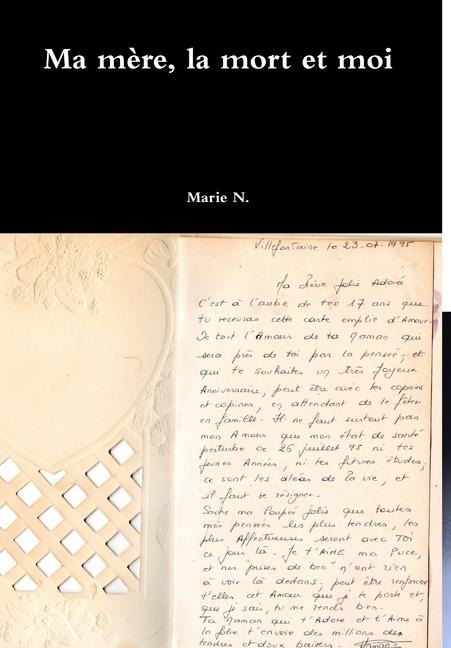 Ma mère, la mort et moi
Marie N.
Villefontaine le 23-07-1995
Ma Chérie Jolie Adorée
C'est à l'aube de tes 17 ans que
tu recevras cette carte emplie d'Amour.
De tout l'Amour de ta Maman qui
sera près de toi par la pensée, et
qui te souhaites un très Joyeux
Anniversaire, peut être avec tes copains
et copines, en attendant de le fêter
en famille. Il ne faut surtout pas
mon Amour que mon état de santé
perturbe ce 26 juillet 95 ni tes
jeunes Années, ni tes futures études,
ce sont les aléas de la vie, et
il faut se résigner.
Sache ma Poupée Jolie que toutes
mes pensées les plus tendres, les
plus Affectueuses seront avec Toi
ce jour là. Je t'AiME ma Puce,
et nos "prises de bec" n'ont rien
à voir là dedans, peut être renforcent
t'elles cet Amour que je te porte et,
que je sais, tu me rends bien.
Ta Maman qui t'Adore et t'Aime à
la folie t'envoie des millions des
tendres et doux baisers. Maman